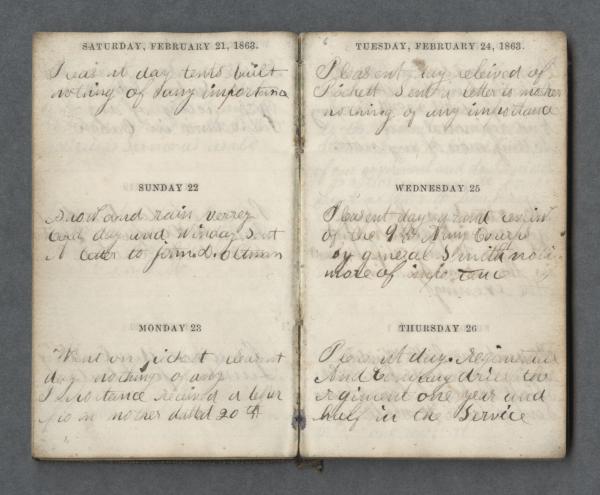 SATURDAY, FEBRUARY 21, 1863.
day tents built
nothing of any importance
SUNDAY 22
Snow and rain verrey
Coad day and Winday Sent
A letter to
MONDAY 23
Went on picket
day nothing of any
received a letter
from mother dated 20th
TUESDAY, FEBRUARY 24, 1863.
Pleasent day releived of
Pickett Sent a letter to mother
nothing of any importance
WEDNESDAY 25
Plesent day grand review
of the 9th Army Coarps
by general Smith no
more of
THURSDAY 26
day. Regimental
And Company drill
regiment one year and
half in the Service